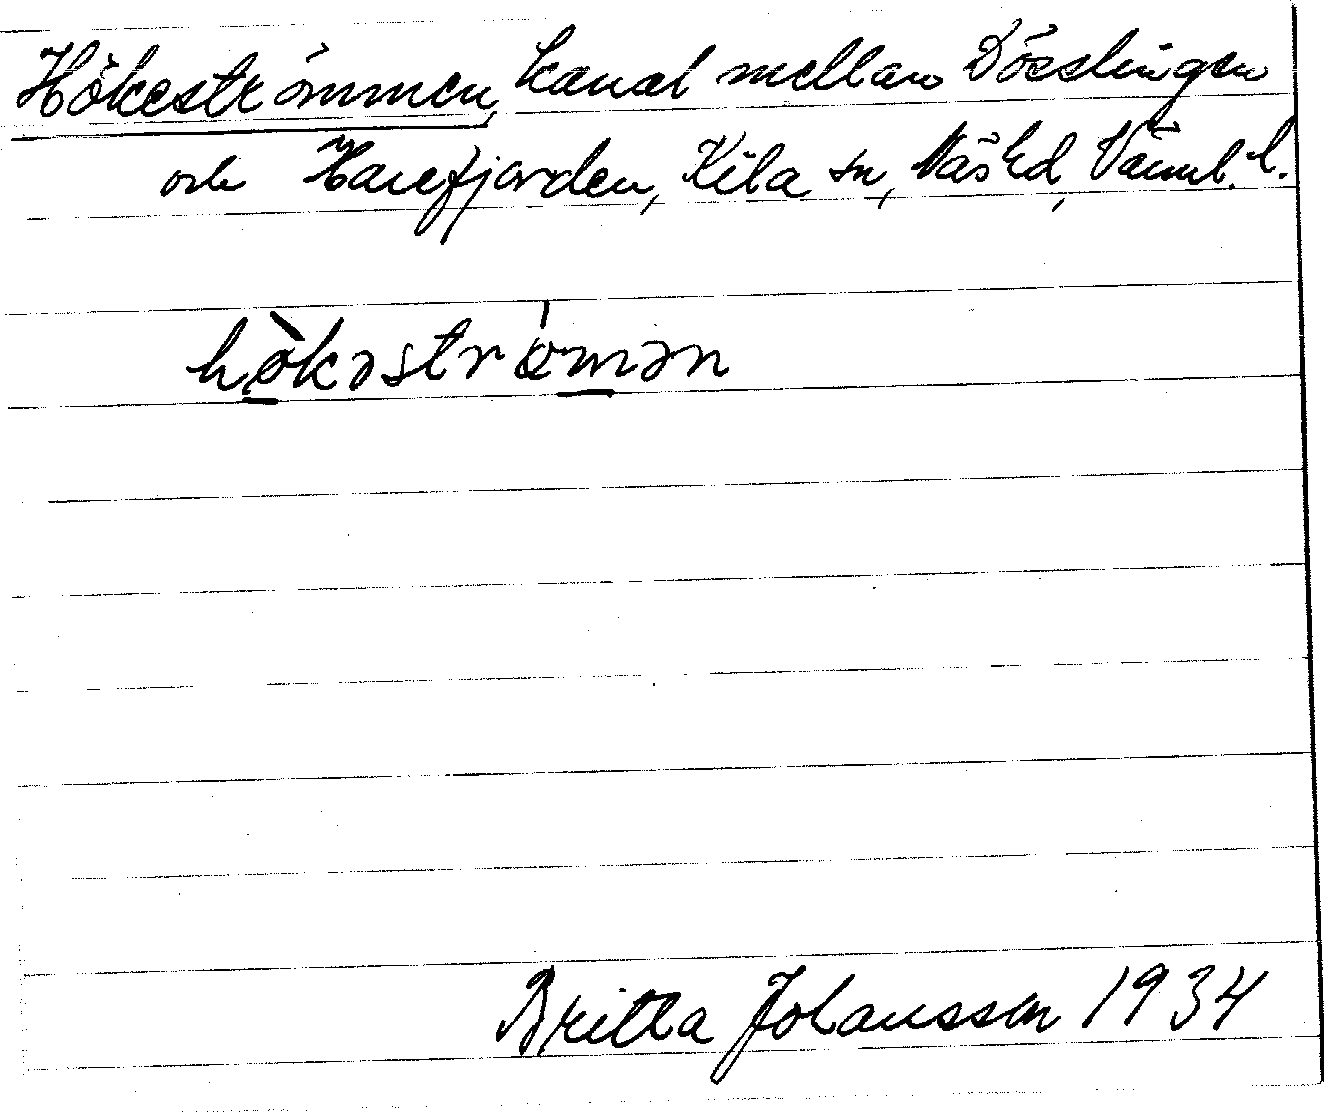 Hökeströmmen, kanal mellan Dösslingen
och Harefjorden, Kila sn, Näs hd, Värml. l.
hökəströmən
Britta Johansson 1934